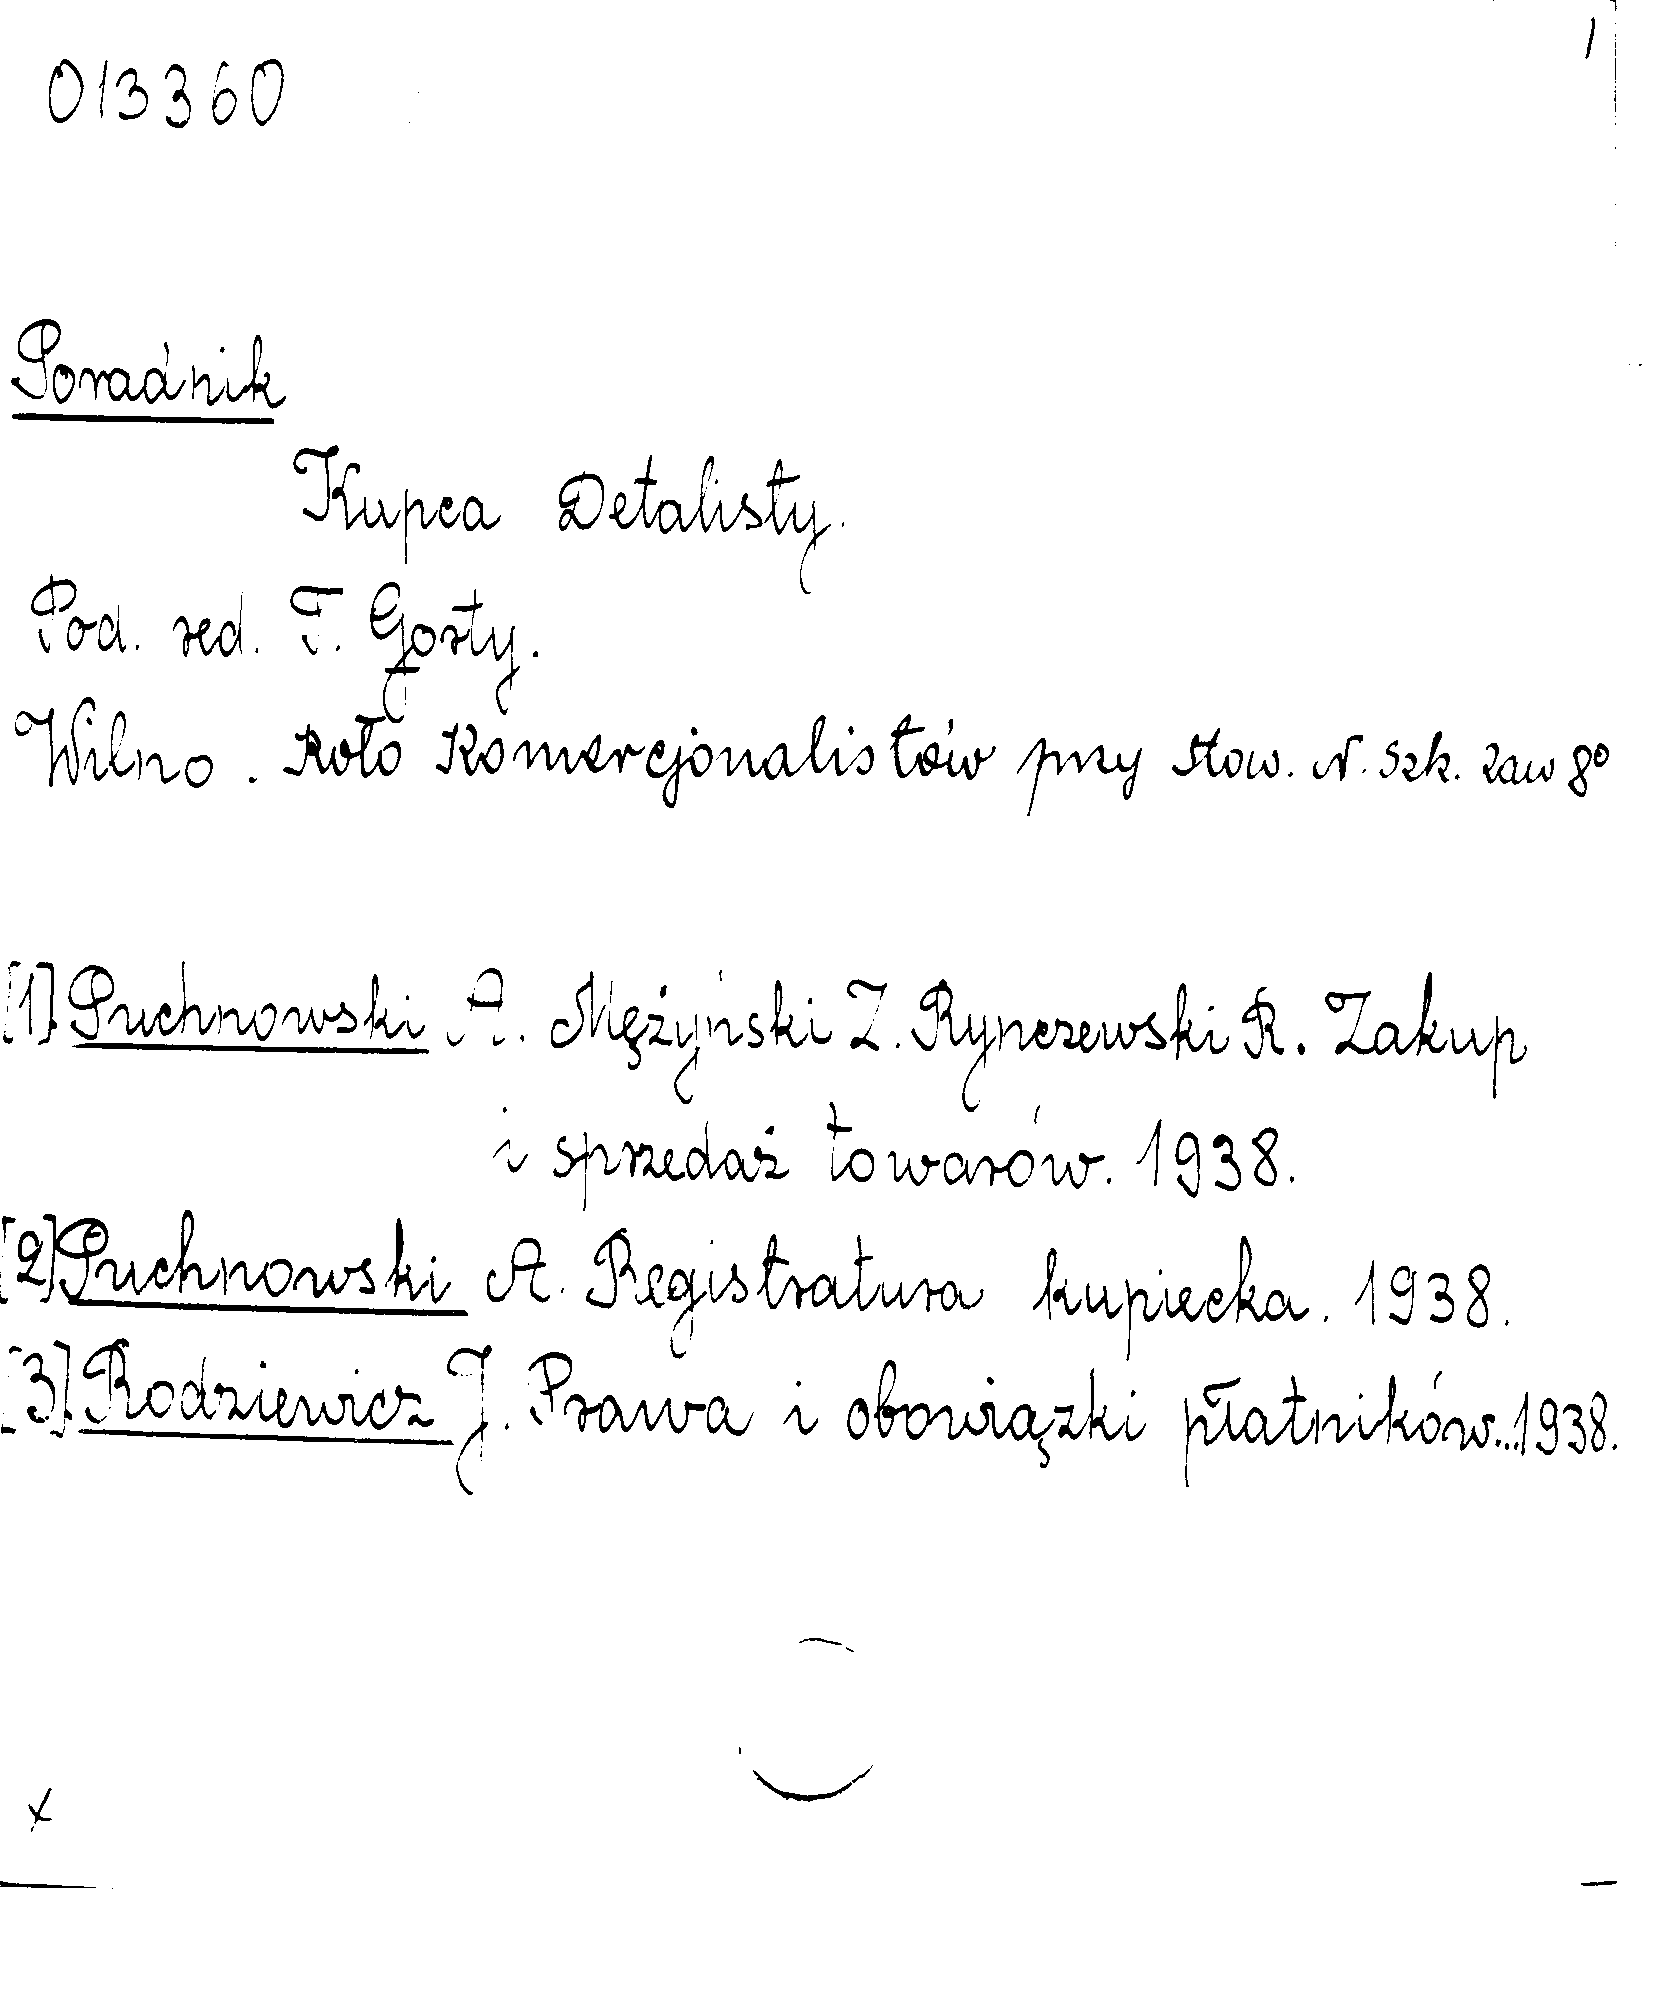 1
013360
Poradnik
Kupca Detalisty.
Pod. red. T. Gosty.
Wilno. Koło Komercjonalistów przy Stow. N. Szk. zaw 8º
[1]. Puchnowski A. Mężyński Z. Rynczewski R. Zakup
i sprzedaż towarów. 1938.
[2] Puchnowski A. Registratura kupiecka. 1938.
[3]. Rodziewicz J. Prawa i obowiązki płatników...1938.
x